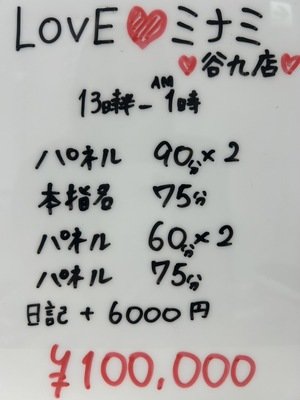 LOVE♥ミナミ
♥谷九店♥
13時半-AM1時
パネル 90分×2
本指名 75分
パネル 60分×2
パネル 75分
日記 + 6000円
¥100,000